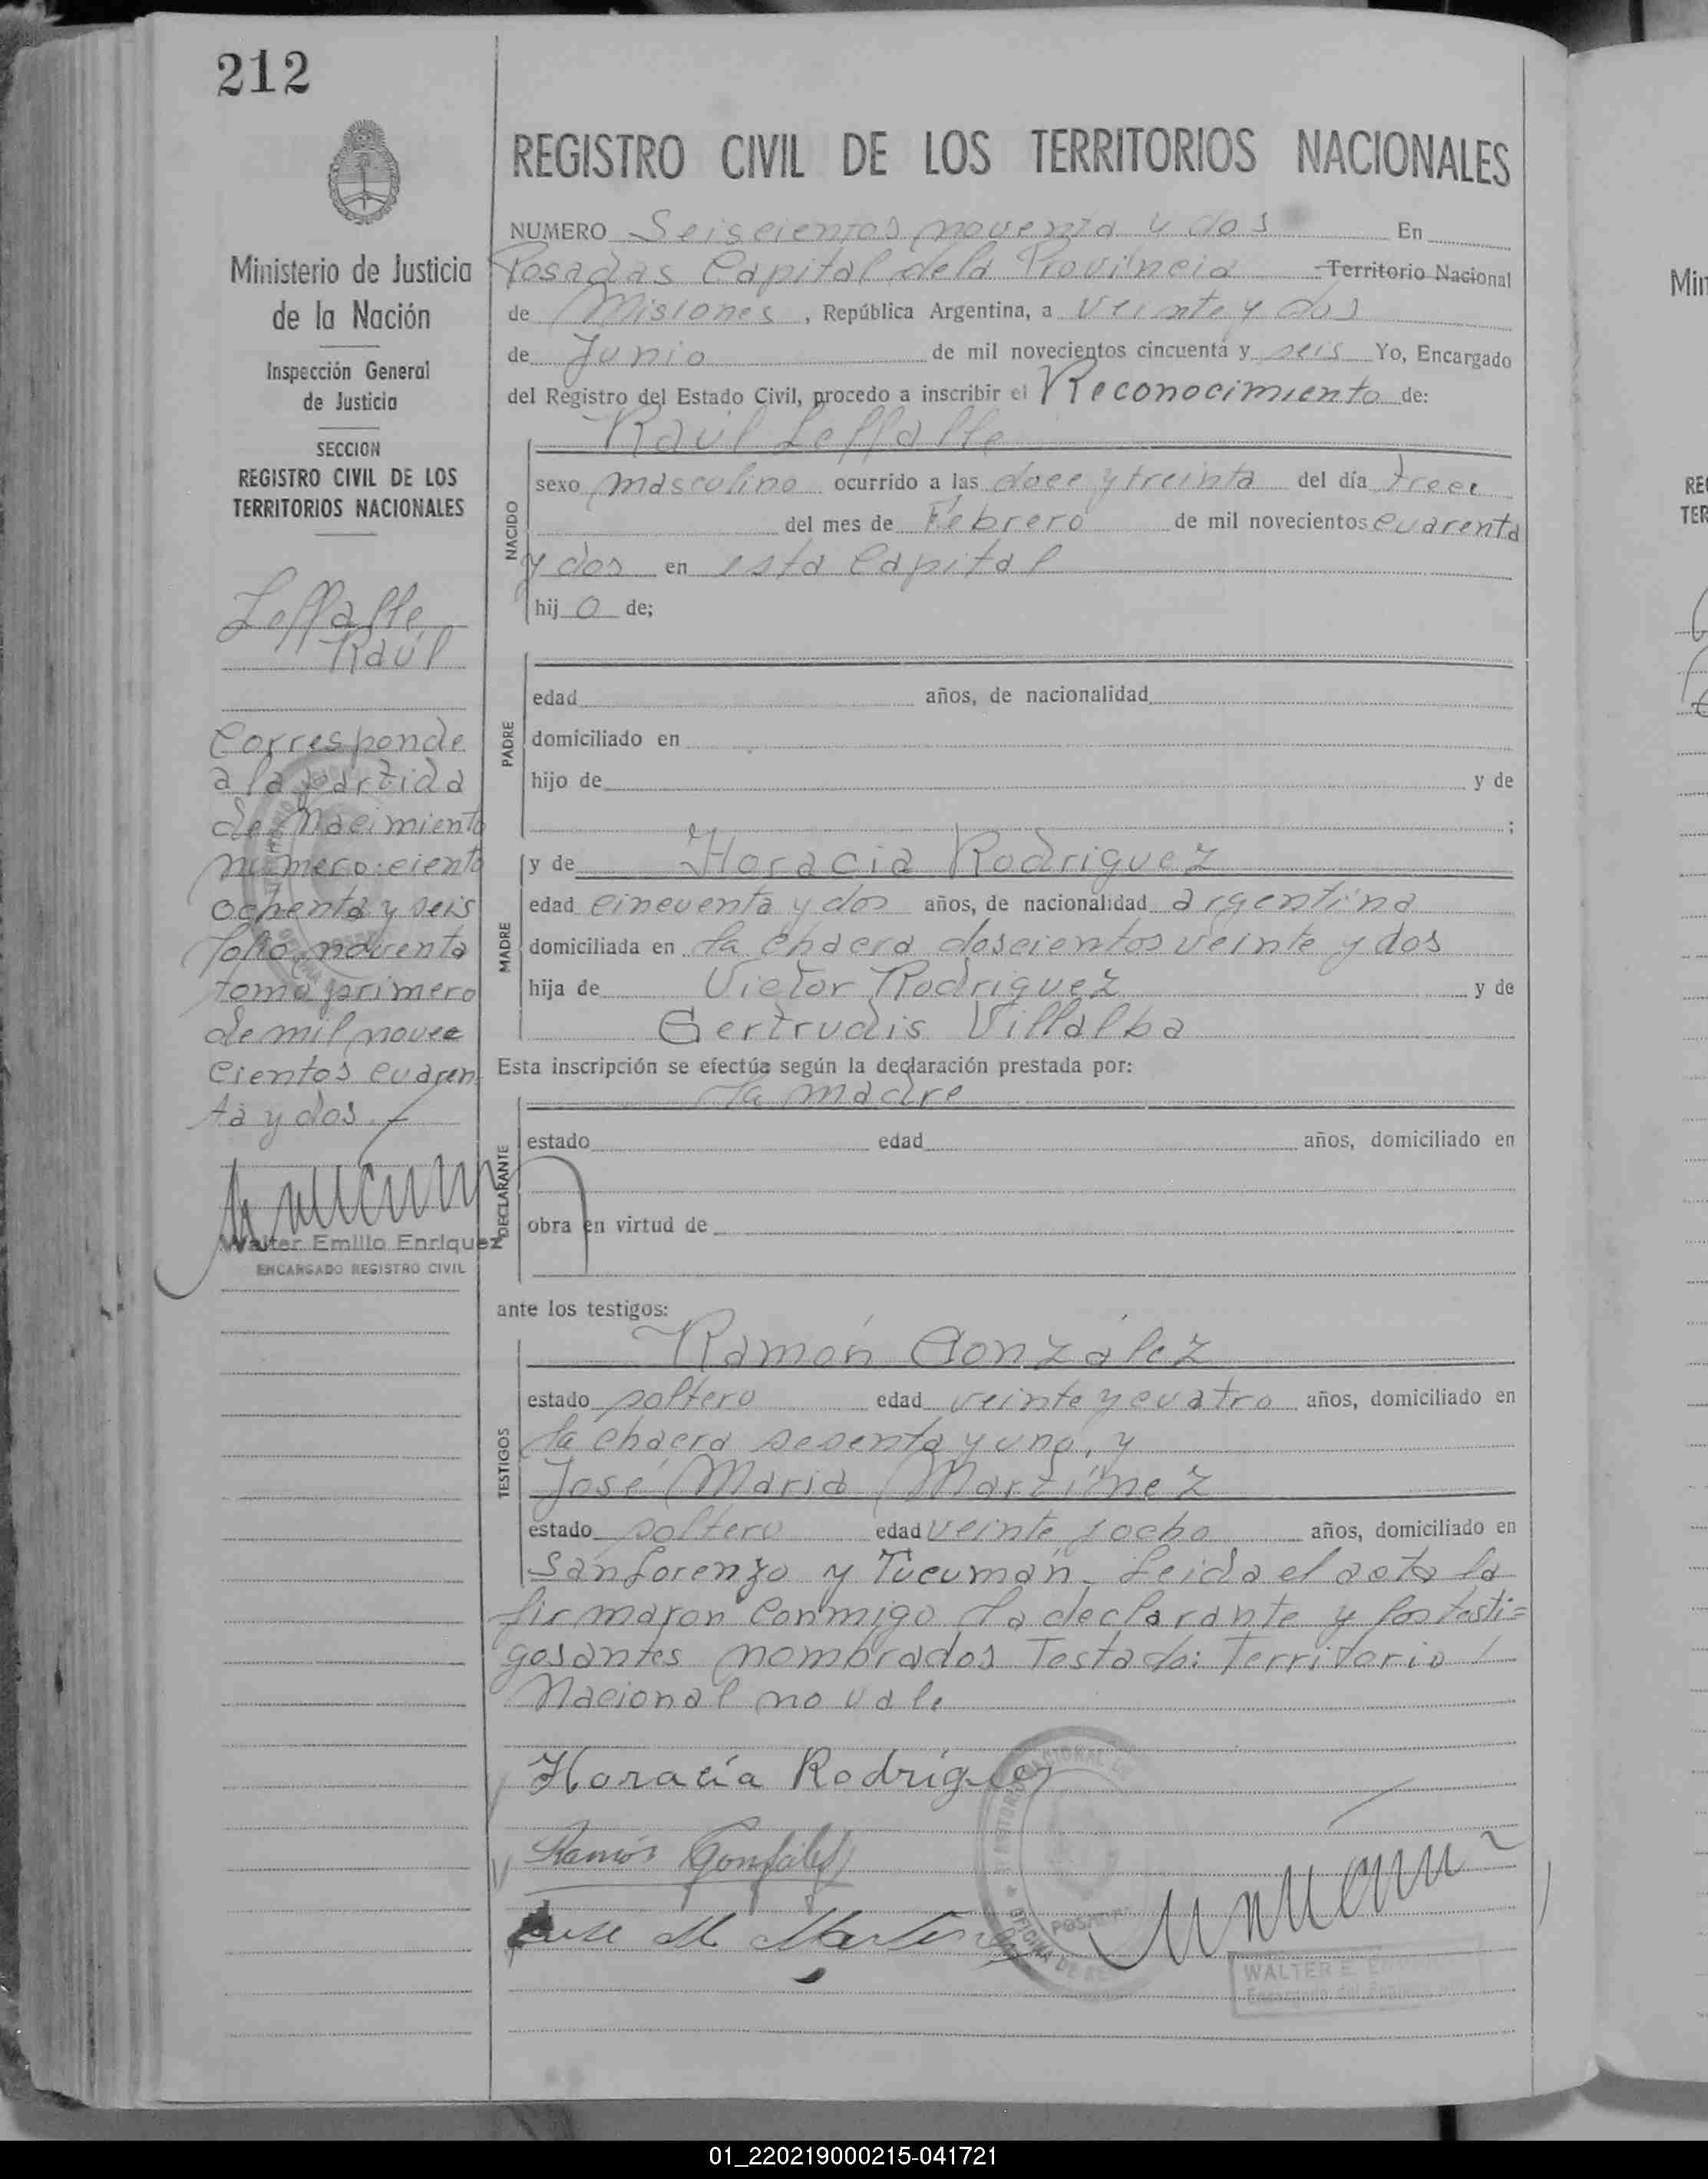 212
REGISTRO CIVIL DE LOS TERRITORIOS NACIONALES
Ministerio de Justicia
de la Nación
Inspección General
de Justicia
SECCION
REGISTRO CIVIL DE LOS
TERRITORIOS NACIONALES
Raúl
Corresponde
a la partida
de Nacimiento
numero: ciento
ochenta y seis
folio noventa
tomo primero
de mil nove
cientos cuaren
ta y dos.
Walter Emilio Enriquez
ENCARGADO REGISTRO CIVIL
NUMERO Seiscientos noventa y dos En
Posadas Capital de la Provincia Territorio Nacional
de Misiones, República Argentina, a veinte y dos
de Junio de mil novecientos cincuenta y seis Yo, Encargado
del Registro del Estado Civil, procedo a inscribir el Reconocimiento de:
Raúl
NACIDO
sexo masculino ocurrido a las doce y treinta del día trece
del mes de Febrero de mil novecientos cuarenta
y dos en esta Capital
hijo de;
PADRE
edad años, de nacionalidad
domiciliado en
hijo de y de
;
MADRE
y de Horacia Rodriguez
edad cincuenta y dos años, de nacionalidad argentina
domiciliada en la chacra doscientos veinte y dos
hija de Victor Rodriguez y de
Gertrudis Villalba
Esta inscripción se efectúa según la declaración prestada por:
la madre
DECLARANTE
estado edad años, domiciliado en
obra en virtud de
ante los testigos:
TESTIGOS
Ramón González
estado soltero edad veinte y cuatro años, domiciliado en
la chacra sesenta y uno, y
José Maria Martínez
estado soltero edad veinte y ocho años, domiciliado en
San Lorenzo y Tucumán. Leida el acta la
firmaron conmigo la declarante y los testi=
gos antes nombrados Testado: Territorio
Nacional no vale
Horacia Rodriguez
Ramón González
Jose M Martinez
POSADAS
OFICINA DE
WALTER E.